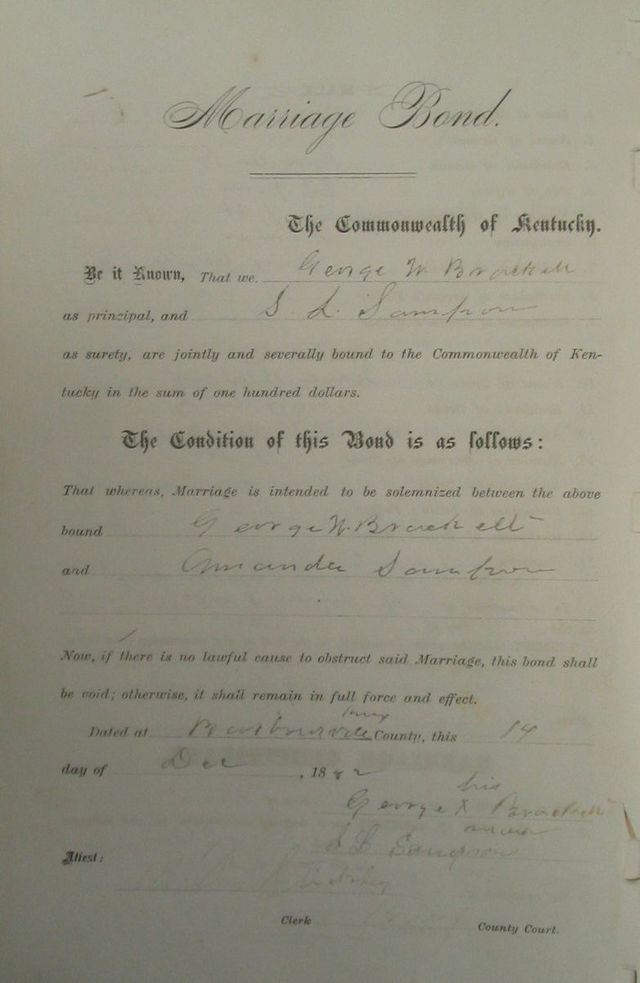 Marriage Bond.
The Commonwealth of Kentucky.
Be it Known, That we, George W Brackett
as principal, and S. L. Sampson
as surety, are jointly and severally bound to the Commonwealth of Ken-
tucky in the sum of one hundred dollars.
The Condition of this Bond is as follows:
That whereas, Marriage is intended to be solemnized between the above
bound George W. Brackett
and Amanda Sampson
Now, if there is no lawful cause to obstruct said Marriage, this bond shall
be void; otherwise, it shall remain in full force and effect.
Knox
Dated at Barbourville County, this 14
day of Dec , 1882
his
George X Brackett
mark
S L Sampson
Attest:
Clerk County Court.